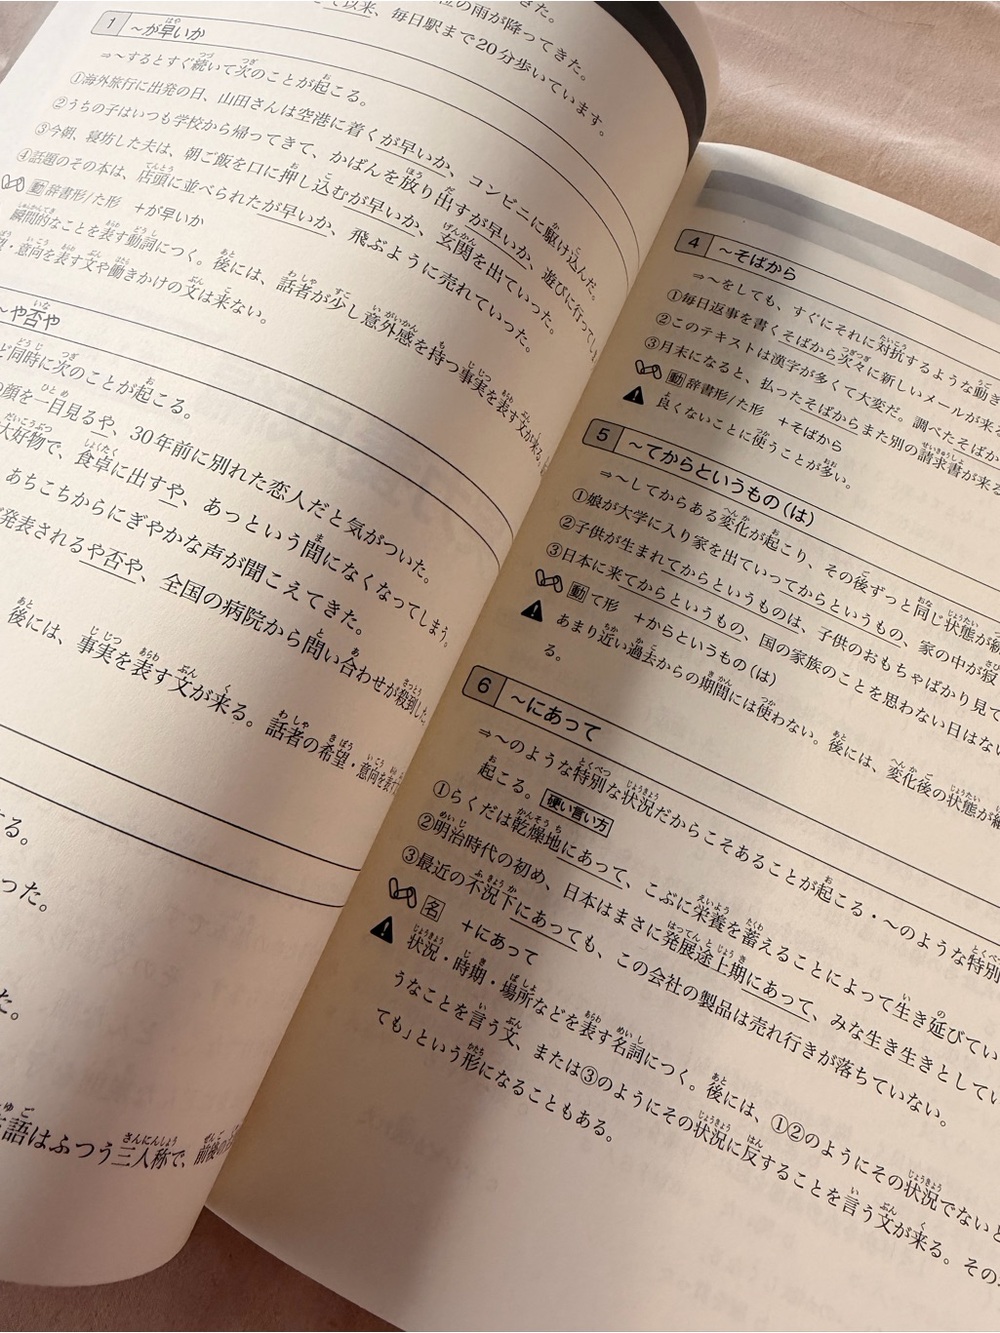 の雨が降ってきた。
て以来、毎日駅まで20分歩いています。
1 ～が早いか
⇒～するとすぐ続いて次のことが起こる。
①海外旅行に出発の日、山田さんは空港に着くが早いか、コンビニに駆け込んだ。
②うちの子はいつも学校から帰ってきて、かばんを放り出すが早いか、遊びに行って
③今朝、寝坊した夫は、朝ご飯を口に押し込むが早いか、玄関を出ていった。
④話題のその本は、店頭に並べられたが早いか、飛ぶように売れていった。
動辞書形/た形 ＋が早いか
瞬間的なことを表す動詞につく。後には、話者が少し意外感を持つ事実を表す文が来る。
・意向を表す文や働きかけの文は来ない。
～や否や
ど同時に次のことが起こる。
の顔を一目見るや、30年前に別れた恋人だと気がついた。
大好物で、食卓に出すや、あっという間になくなってしまう。
あちこちからにぎやかな声が聞こえてきた。
発表されるや否や、全国の病院から問い合わせが殺到した。
後には、事実を表す文が来る。話者の希望・意向を表す
する。
った。
た。
語はふつう三人称で、前後の
4 ～そばから
⇒～をしても、すぐにそれに対抗するような動き
①毎日返事を書くそばから次々に新しいメールが来
②このテキストは漢字が多くて大変だ。調べたそばか
③月末になると、払ったそばからまた別の請求書が来
動辞書形/た形 ＋そばから
良くないことに使うことが多い。
5 ～てからというもの（は）
⇒～してからある変化が起こり、その後ずっと同じ状態が
①娘が大学に入り家を出ていってからというもの、家の中が寂
②子供が生まれてからというものは、子供のおもちゃばかり見て
③日本に来てからというもの、国の家族のことを思わない日はない
動て形 ＋からというもの（は）
あまり近い過去からの期間には使わない。後には、変化後の状態が
る。
6 ～にあって
⇒～のような特別な状況だからこそあることが起こる・～のような特別
起こる。 硬い言い方
①らくだは乾燥地にあって、こぶに栄養を蓄えることによって生き延びてい
②明治時代の初め、日本はまさに発展途上期にあって、みな生き生きとしてい
③最近の不況下にあっても、この会社の製品は売れ行きが落ちていない。
名 ＋にあって
状況・時期・場所などを表す名詞につく。後には、①②のようにその状況でないと
うなことを言う文、または③のようにその状況に反することを言う文が来る。その
ても」という形になることもある。